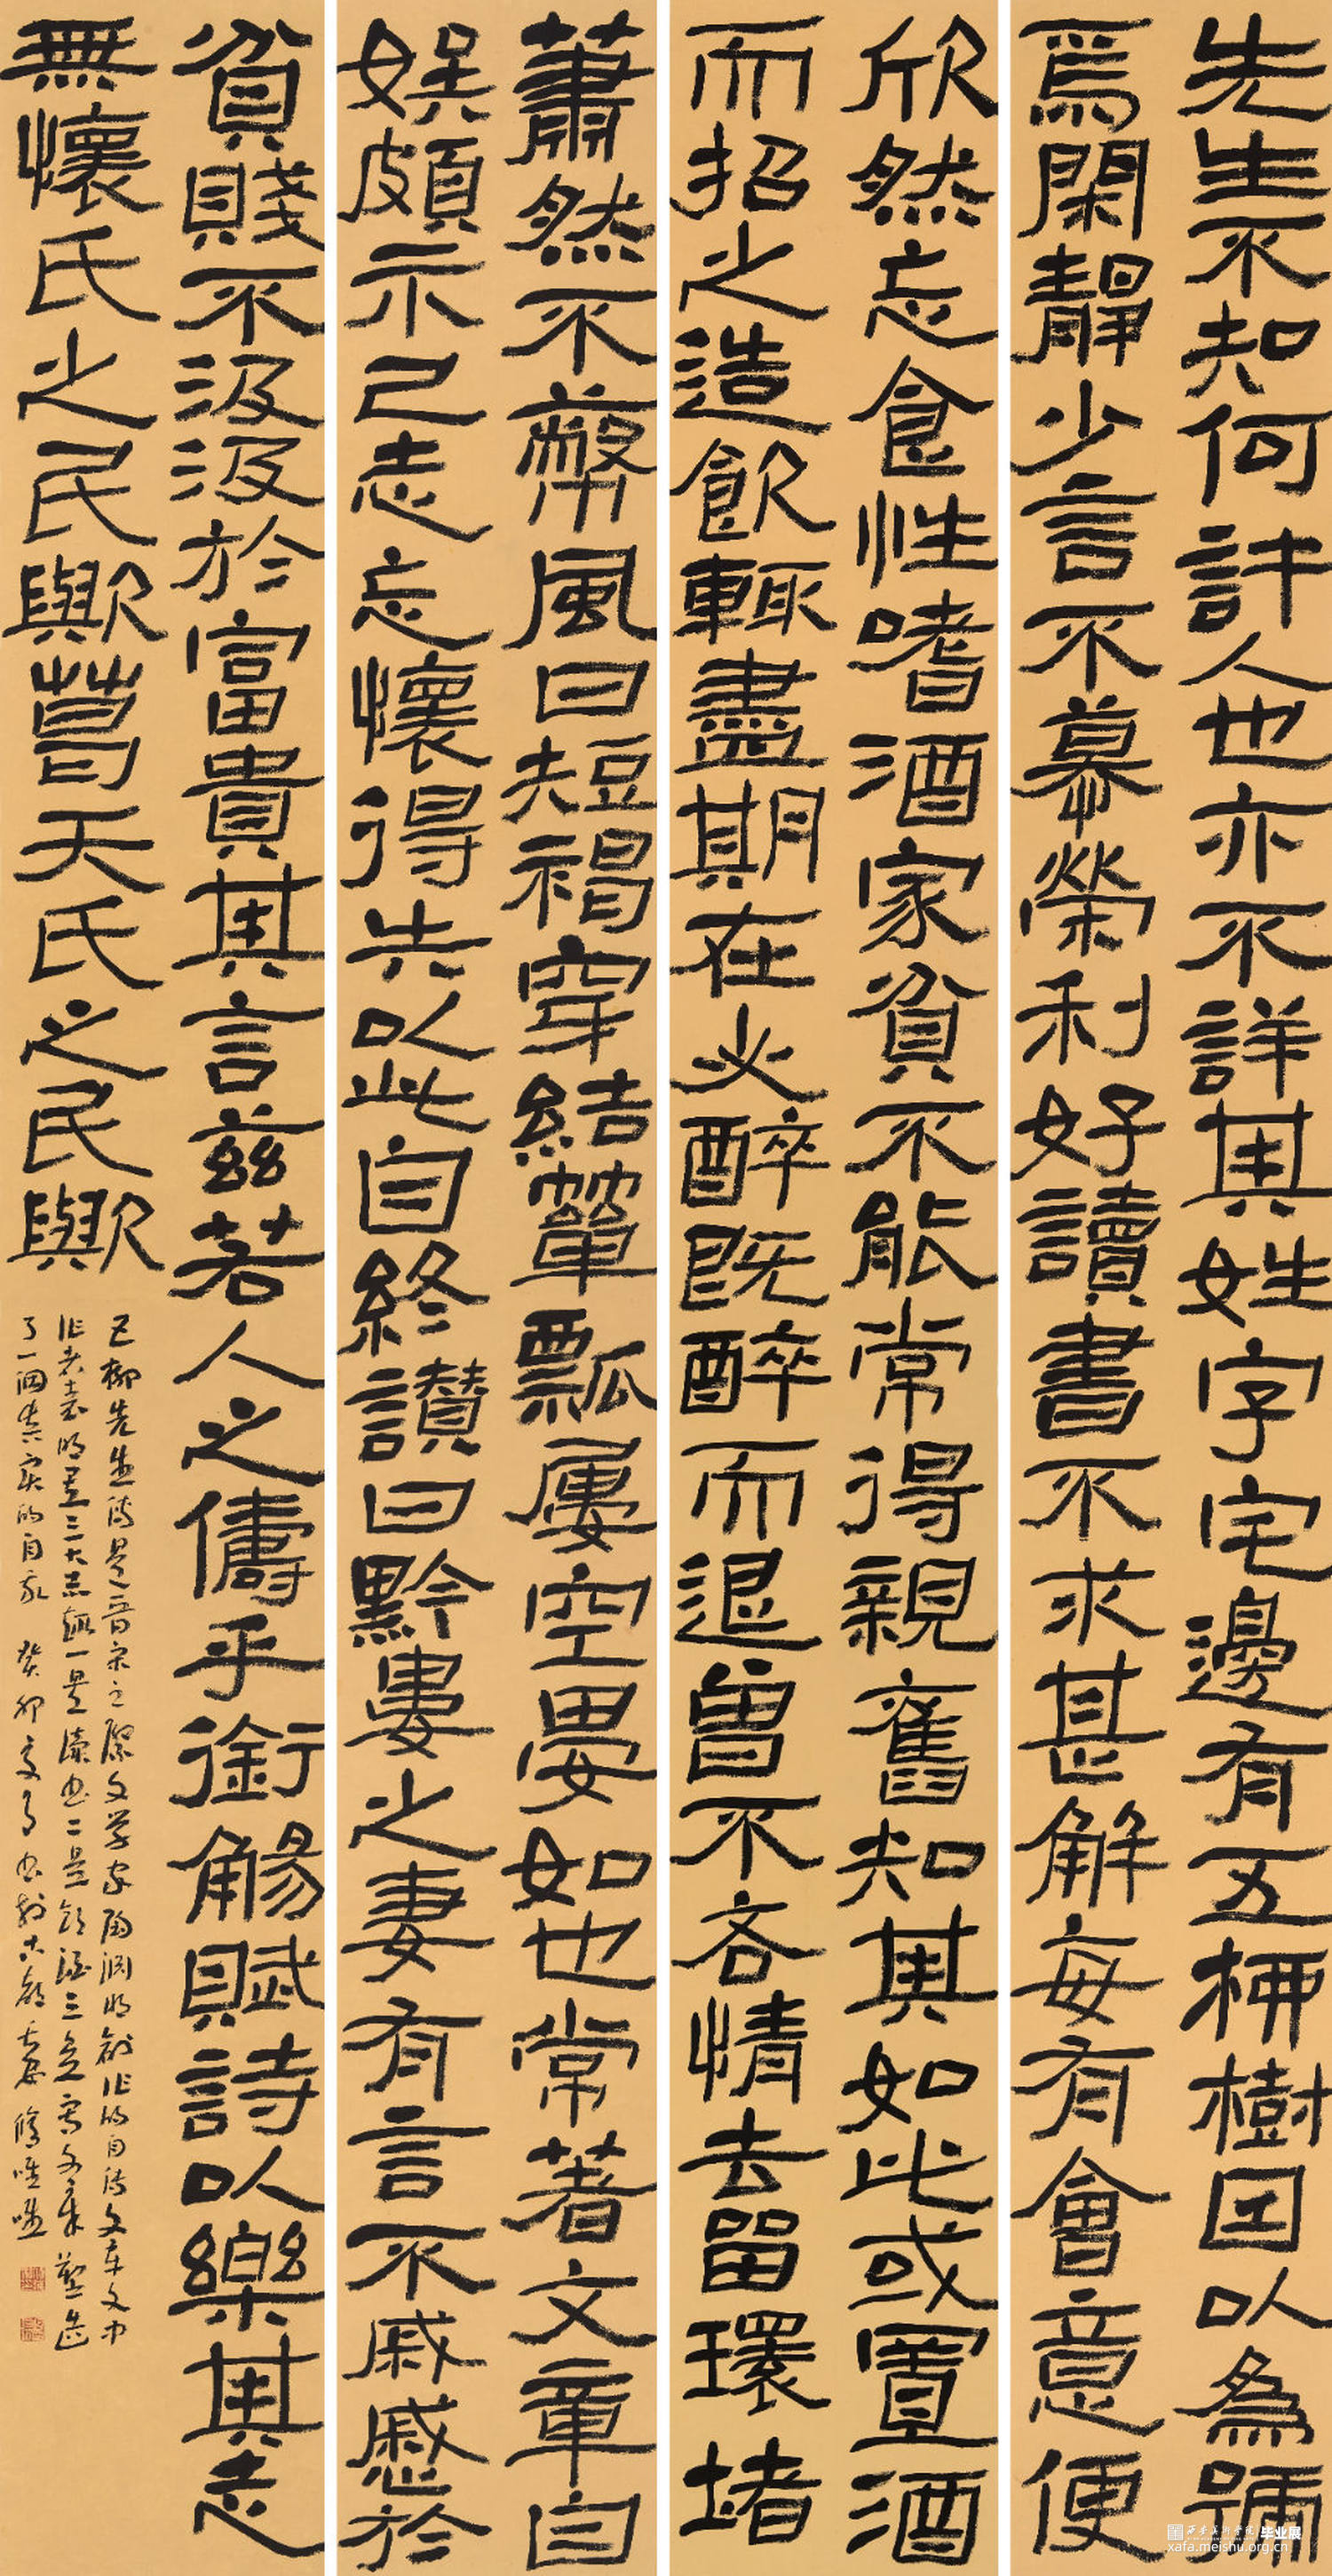 先生不知何許人也亦不詳其姓字宅邊有五柳樹因以為號
焉閑靜少言不慕榮利好讀書不求甚解每有會意便
欣然忘食性嗜酒家貧不能常得親舊知其如此或置酒
而招之造飲輒盡期在必醉既醉而退曾不吝情去留環堵
蕭然不蔽風日短褐穿結簞瓢屢空晏如也常著文章自
娛頗示己志忘懷得失以此自終讚曰黔婁之妻有言不戚戚於
貧賤不汲汲於富貴其言茲若人之儔乎銜觴賦詩以樂其志
無懷氏之民歟葛天氏之民歟
五柳先生傳是晉宋之際文學家陶淵明創作的自傳文章文中
作者表明其三大志趣一是讀書二是飲酒三是寫文章塑造
了一個真實的自我 癸卯夏月書於古都長安
西安美术学院 毕业展
xafa.meishu.org.cn